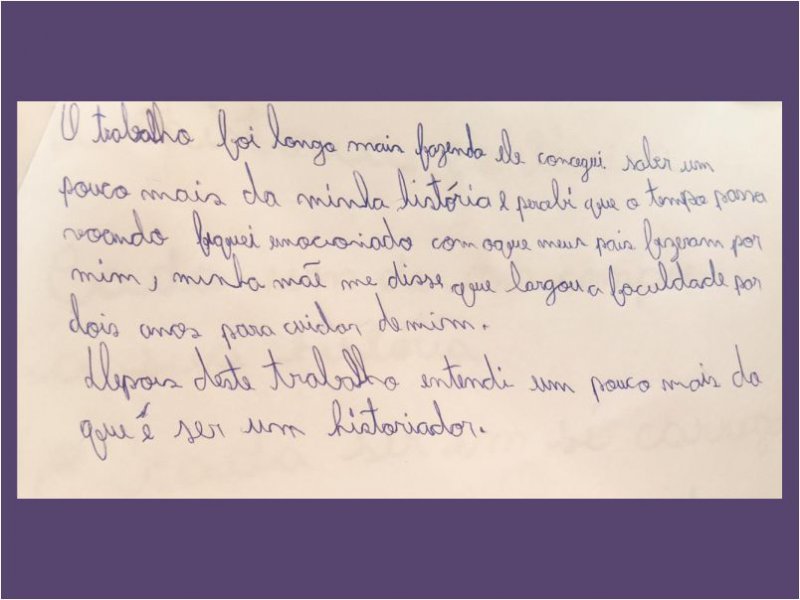 O trabalho foi longo mais fazendo ele consegui saber um
pouco mais da minha história e percebi que o tempo passa
voando fiquei emocionado com oque meus pais fizeram por
mim, minha mãe me disse que largou a faculdade por
dois anos para cuidar de mim.
Depois deste trabalho entendi um pouco mais da
que é ser um historiador.